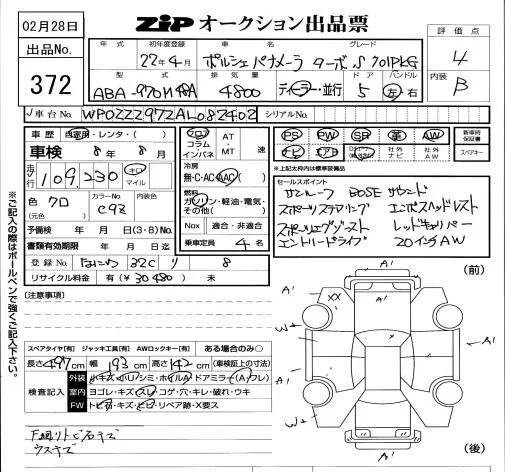 02月28日
ZIP オークション出品票
評価点
4
出品No.
372
年式 初年度登録 車名 グレード
22年4月 ポルシェ パナメーラ ターボ
型式 排気量 ドア ハンドル
ABA-970M48A 4800 ディーラー・並行 5 左・右
内装
B
車台No. WP0ZZZ97ZAL082402 シリアルNo.
車歴 自家用・レンタ・( )
車検 8年8月
走行 109,230 キロ マイル
色 クロ カラーNo. C9Z 内装色
(元色)
予備検 年 月 日(3・8)No.
書類有効期限 年 月 日迄
登録No. なにわ 32C り 8
リサイクル料金 有(¥30480) 未
フロア コラム インパネ AT・MT 速
冷房
無・C・AC・AAC( )
燃料
ガソリン・軽油・電気・その他( )
Nox 適合・非適合
乗車定員 4名
PS PW SR 革 AW 新車時保証書
ナビ エアB 社外ナビ 社外AW スペアキー
*上記太枠内は標準装備品
セールスポイント
サンルーフ BOSEサウンド
スポーツステアリング エンボスヘッドレスト
スポーツエグゾースト レッドキャリパー
エントリードライブ 20インチAW
※ご記入の際はボールペンで強くご記入下さい。
[注意事項]
スペアタイヤ[有] ジャッキ工具[有] AWロックキー[有] ある場合のみ○
長さ497cm 幅193cm 高さ142cm (車検証上の寸法)
検査記入
外装 小キズ・小ハリ・シミ・ホイルA・ドアミラー(A・ワレ)
室内 ヨゴレ・キズ・スレ・コゲ・穴・キレ・破れ・ウキ
FW トビ石・キズ・ヒビ・リペア跡・X要ス
ウスキズ
(前)
A' A' A' XX W A' A' A' W A'
(後)